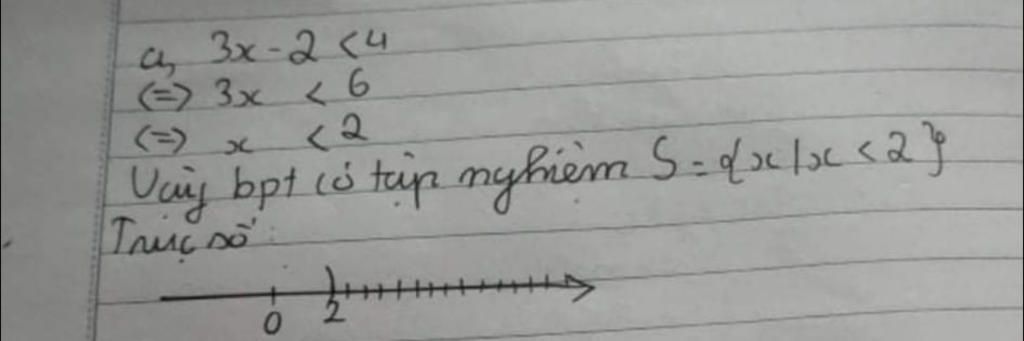 a, 3x - 2 < 4
<=> 3x < 6
<=> x < 2
Vậy bpt có tập nghiệm S = {x | x < 2}
Trục số:
0 2